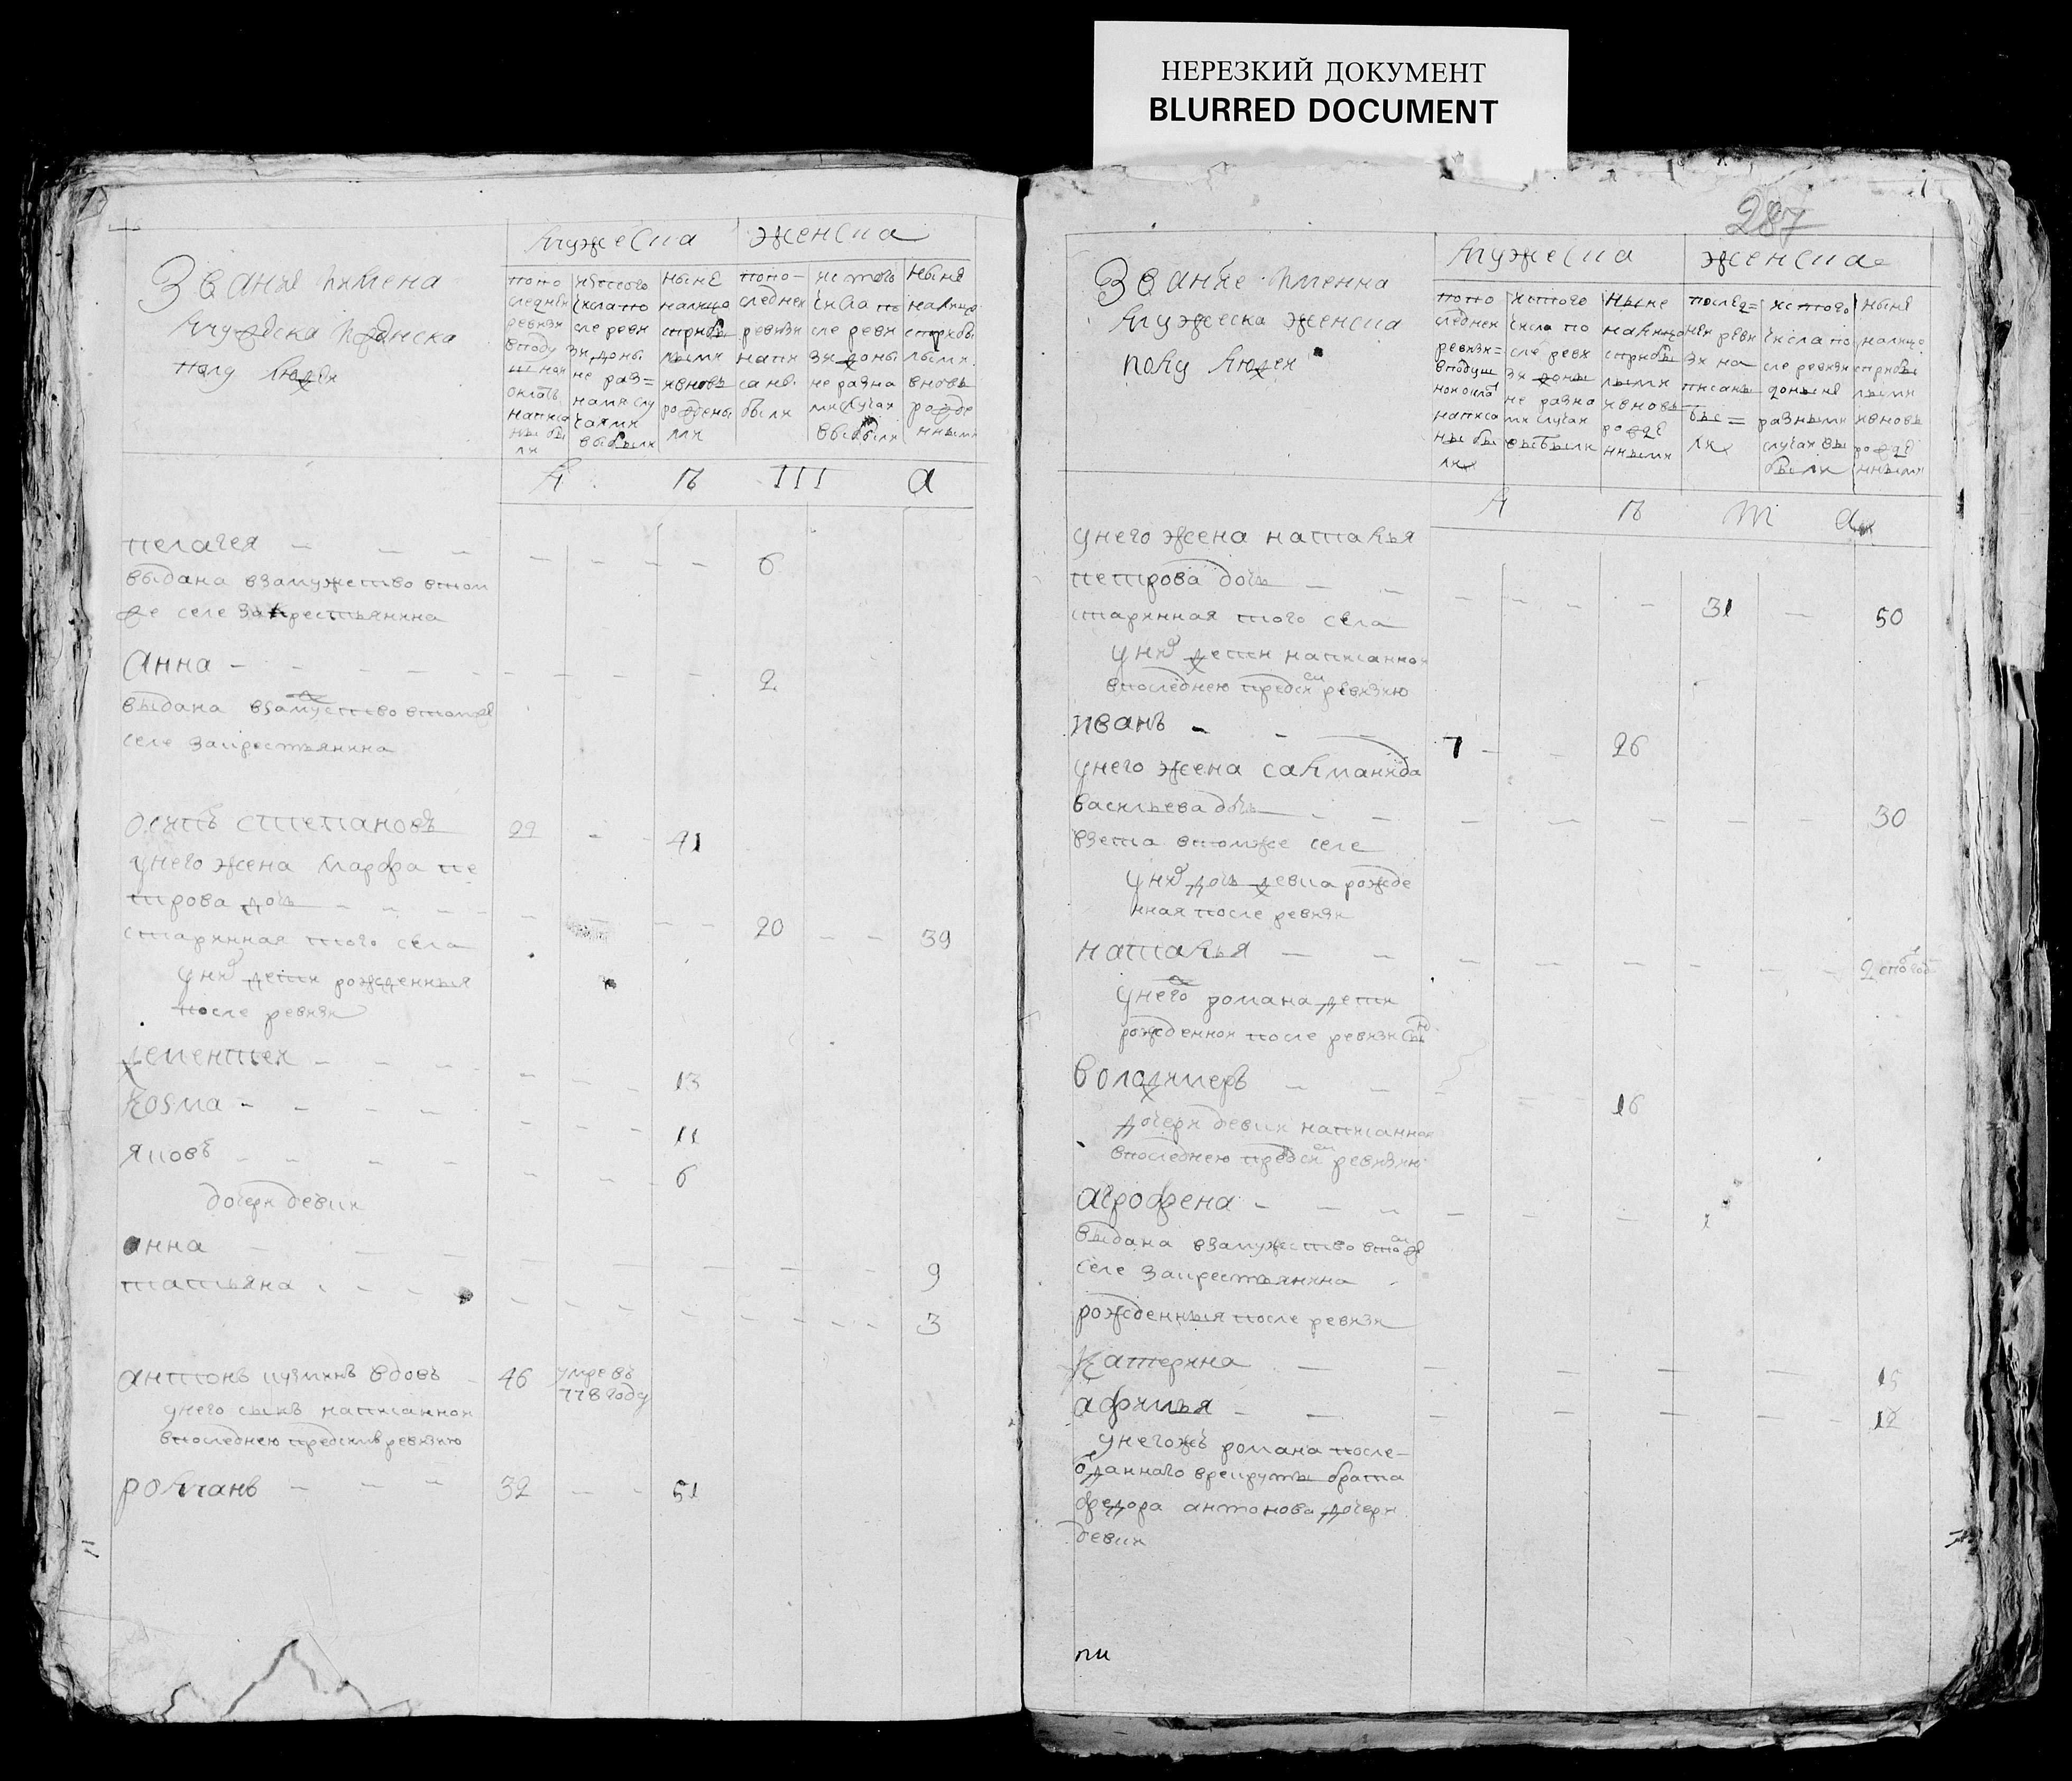 НЕРЕЗКИЙ ДОКУМЕНТ
BLURRED DOCUMENT
Звания имена
мужеска женска
полу людей
мужеска
женска
попо
следней
ревизи
вподу
шной
окладъ
написа
ны бы
ли
исътого
числа по
сле реви
зи доны
не раз=
нами слу
чаями
выбыли
ныне
налицо
спрабы
лыми
ивновъ
рождены
ми
попо-
следней
ревизи
напи
саны
были
истого
числа по
сле реви
зи доны
не разна
ми случаи
выбыли
ныне
налицо
сприбы
лыми
вновь
рожде
нными
л
ѣ
т
а
пелагея
6
выдана взамужество втом
же селе закрестьянина
Анна
2
выдана взамуство втомже
селе закрестьянина
осипъ степановъ
29
41
унего жена марфа пе
трова дочь
20
39
старинная того села
уних дети рожденныя
после ревизи
дементеи
13
козма
11
яковъ
6
дочери девки
анна
9
татьяна
3
антонъ кузминъ вдовъ
46
умре въ
778 году
унего сынъ написаннои
впоследнею предсию ревизию
романъ
32
51
287
Звание именна
мужеска женска
полу людеи
мужеска
женска
попо
следнеи
ревизи=
вподуш
нои окла
написа
ны бы
ли
истого
числа по
сле реви
зи доны
не разна
ми случаи
выбыли
ныне
налицо
сприбы
лыми
ивновь
рожде
нными
послед=
неи реви
зи на
писаны
бы=
ли
истого
числа по
сле ревизи
доныне
разными
случаи вы
были
ныне
налицо
сприбы
лыми
ивновь
рожде
нными
л
ѣ
т
а
унего жена наталья
петрова дочь
31
50
старинная того села
уних дети написаннои
впоследнею предсию ревизию
иванъ
7
26
унего жена салманида
васильева дочь
30
взета втомже селе
уних дочь девка рожде
нная после ревизи
наталья
2
унего романа дети
рожденнои после ревизи сынъ
володимеръ
16
дочери девки написанная
впоследнею предсию ревизии
агрофена
выдана взамужество втомже
селе закрестьянина
рожденныя после ревизи
катерина
15
афимья
12
унегожъ романа после-
отданного врекруты брата
федора антонова дочери
девки